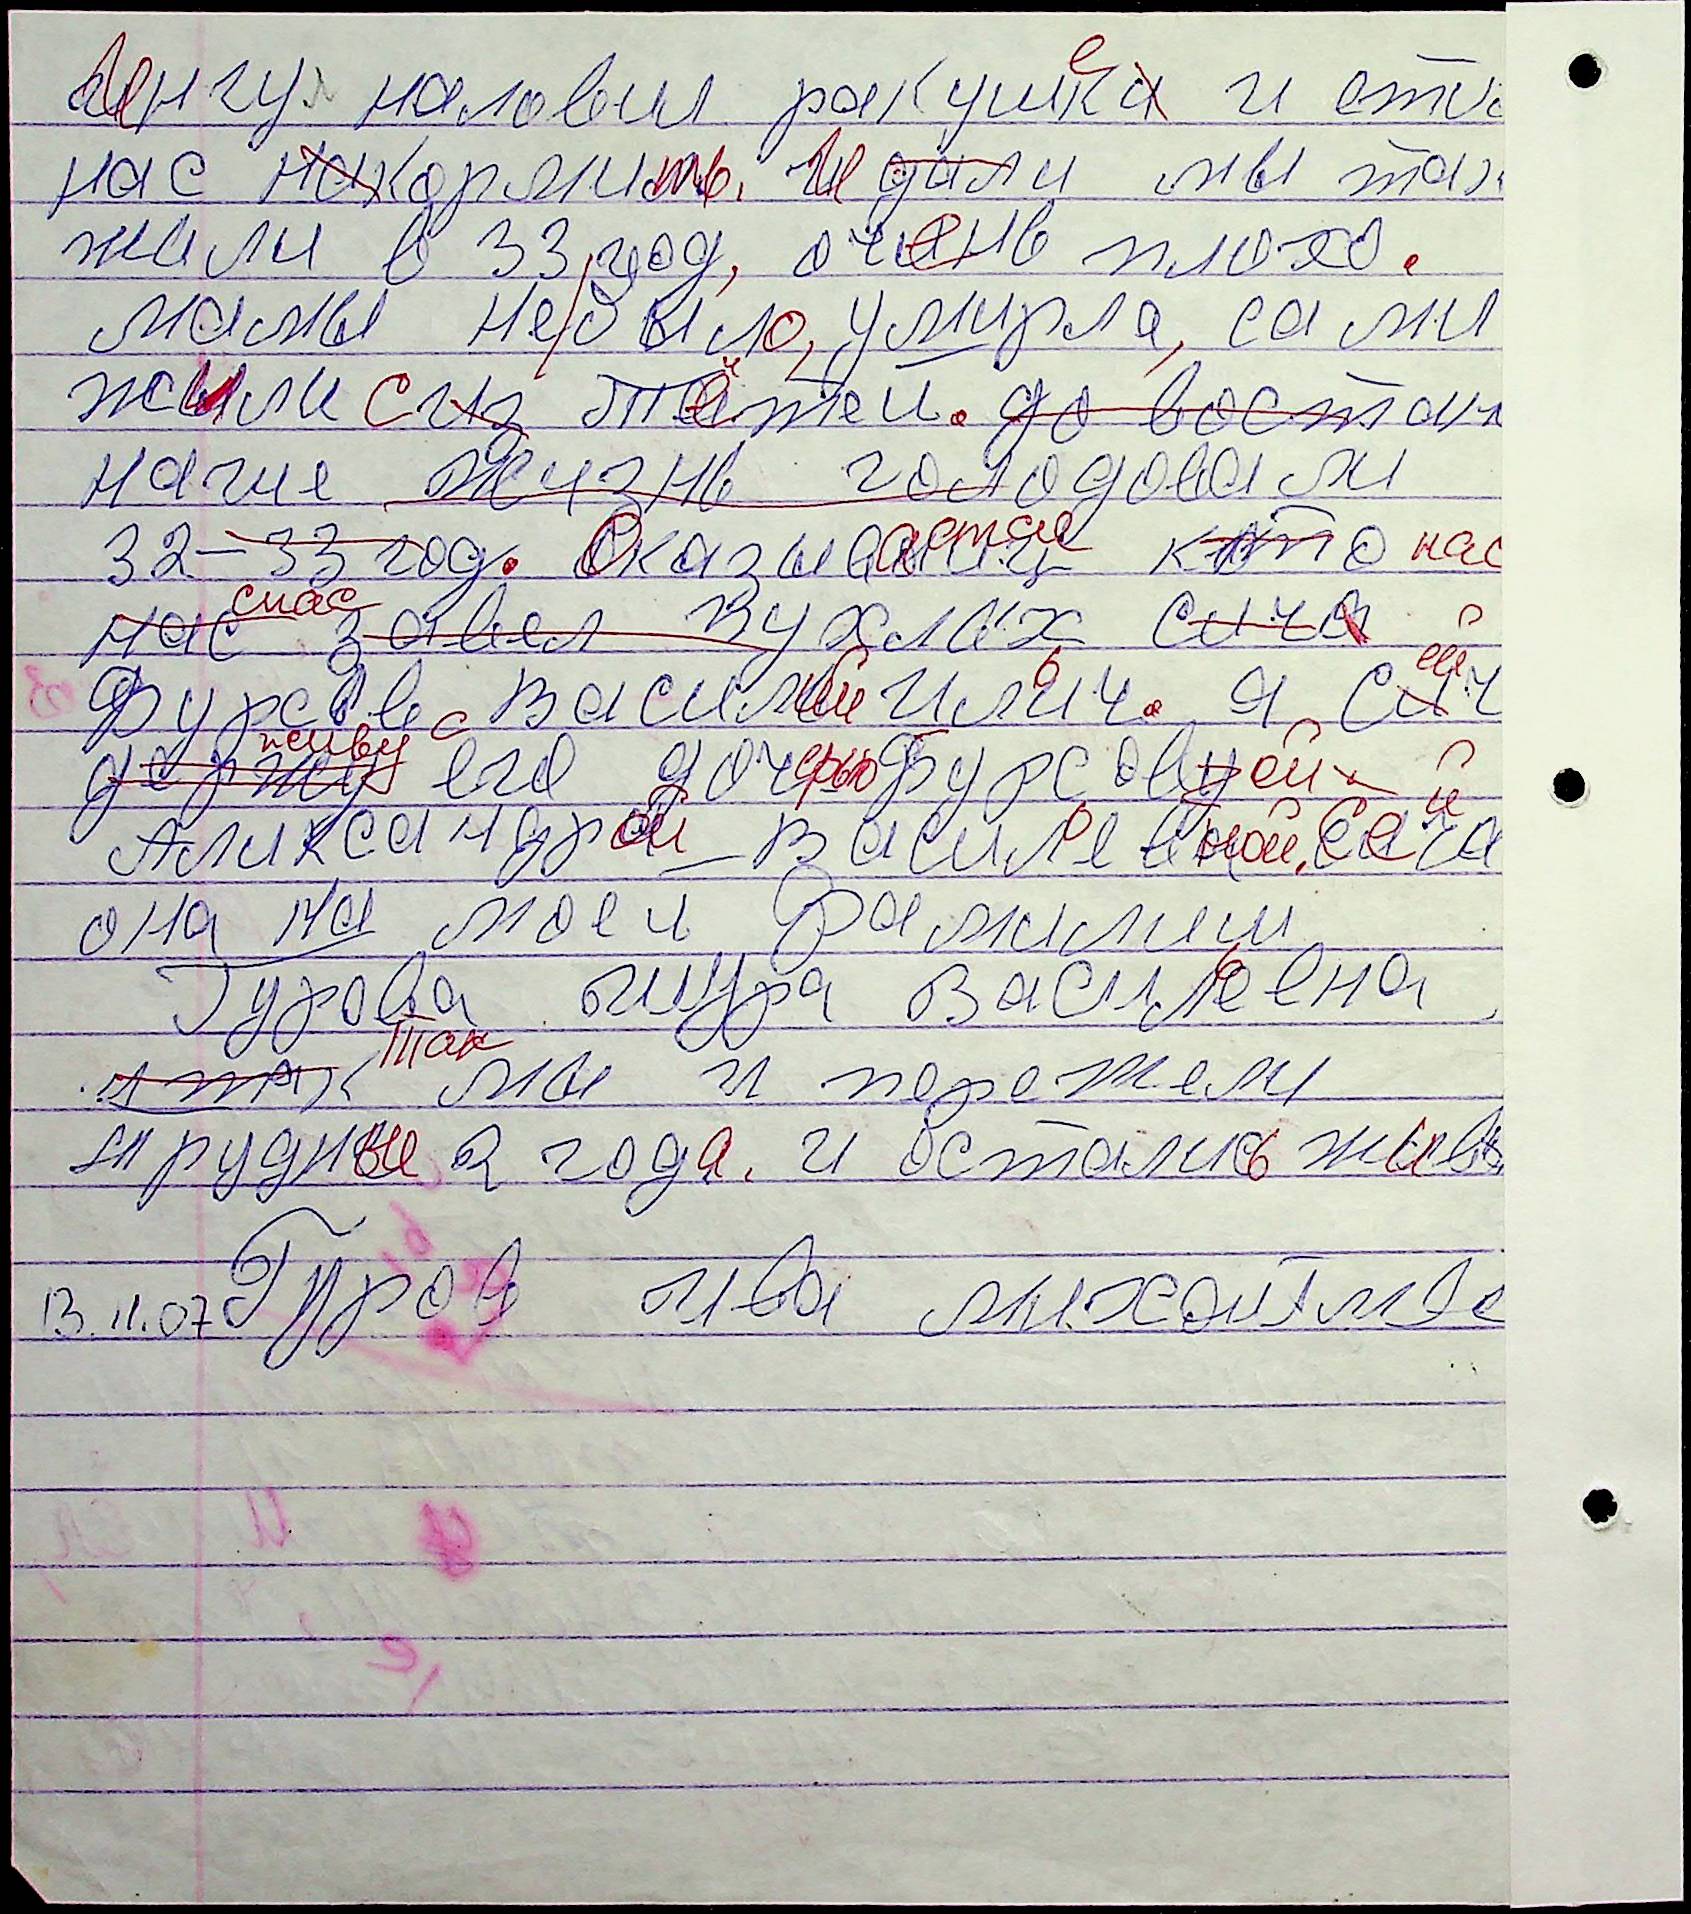 нул наловил ракушек и ста
нас кормить. И дали мы так
жили в 33 год, очень плохо.
мамы не было, умирла, сами
жили с тётей. до востан
нагие жизнь голодовали
32-33 год. Оказывается кто нас
спас
нас завел Вухлах сича
Фурсов Василий Ильич. я сич
живу с
держу его дочерью Фурсовой
Аликсандрой Василевной. Сича
она на моей фамилии
Гурова Шура Василевна
так
итак мы и пережели
трудные 2 года. и остались живы
13.11.07 Гуров ива михайлов